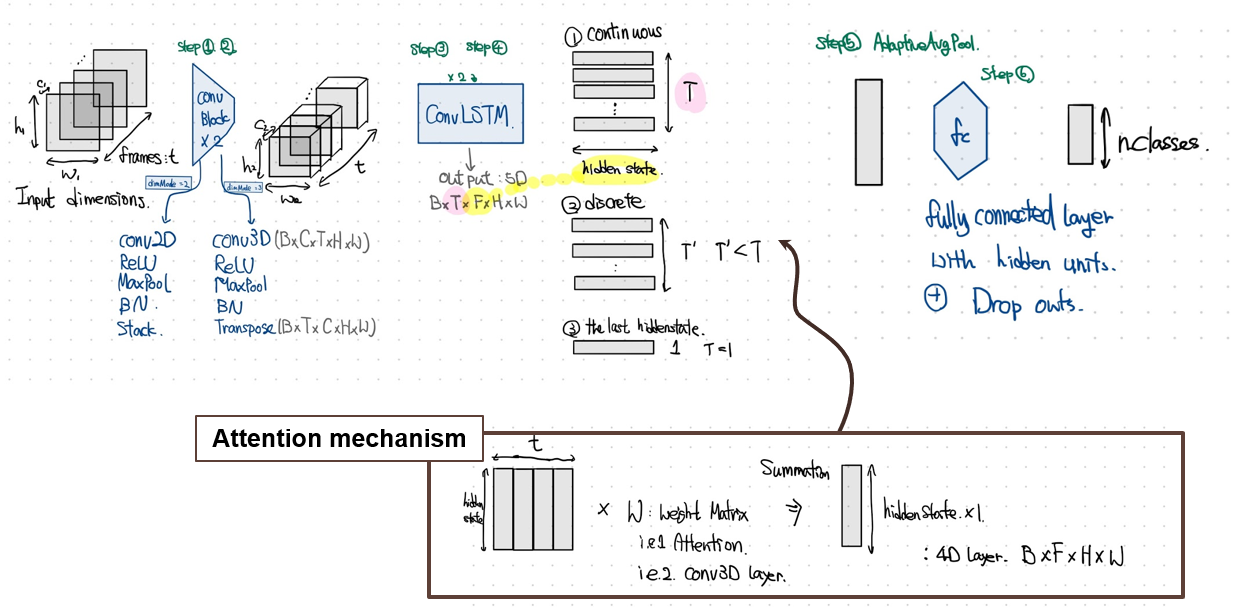 Step ① ②
C1
h1
W1
frames: t
Input dimensions.
Conv
Block
× 2
dimMode = 2
dimMode = 3
Conv2D
ReLU
MaxPool
BN.
Stack.
Conv3D (B×C×T×H×W)
ReLU
MaxPool
BN
Transpose (B×T×C×H×W)
C2
h2
W2
t
Step ③ Step ④
× 2
ConvLSTM.
output : 5D
B×T×F×H×W
① continuous
⋮
T
hidden state.
② discrete
⋮
T' T' < T
③ the last hiddenstate.
1 T=1
Step ⑤ AdaptiveAvgPool.
Step ⑥
fc
nclasses.
fully connected layer
with hidden units.
⊕ Drop outs.
Attention mechanism
t
hidden
state
× W : weight Matrix
i.e.1 Attention.
i.e.2. Conv3D layer.
Summation
⇒
hiddenstate.×1.
: 4D layer. B×F×H×W